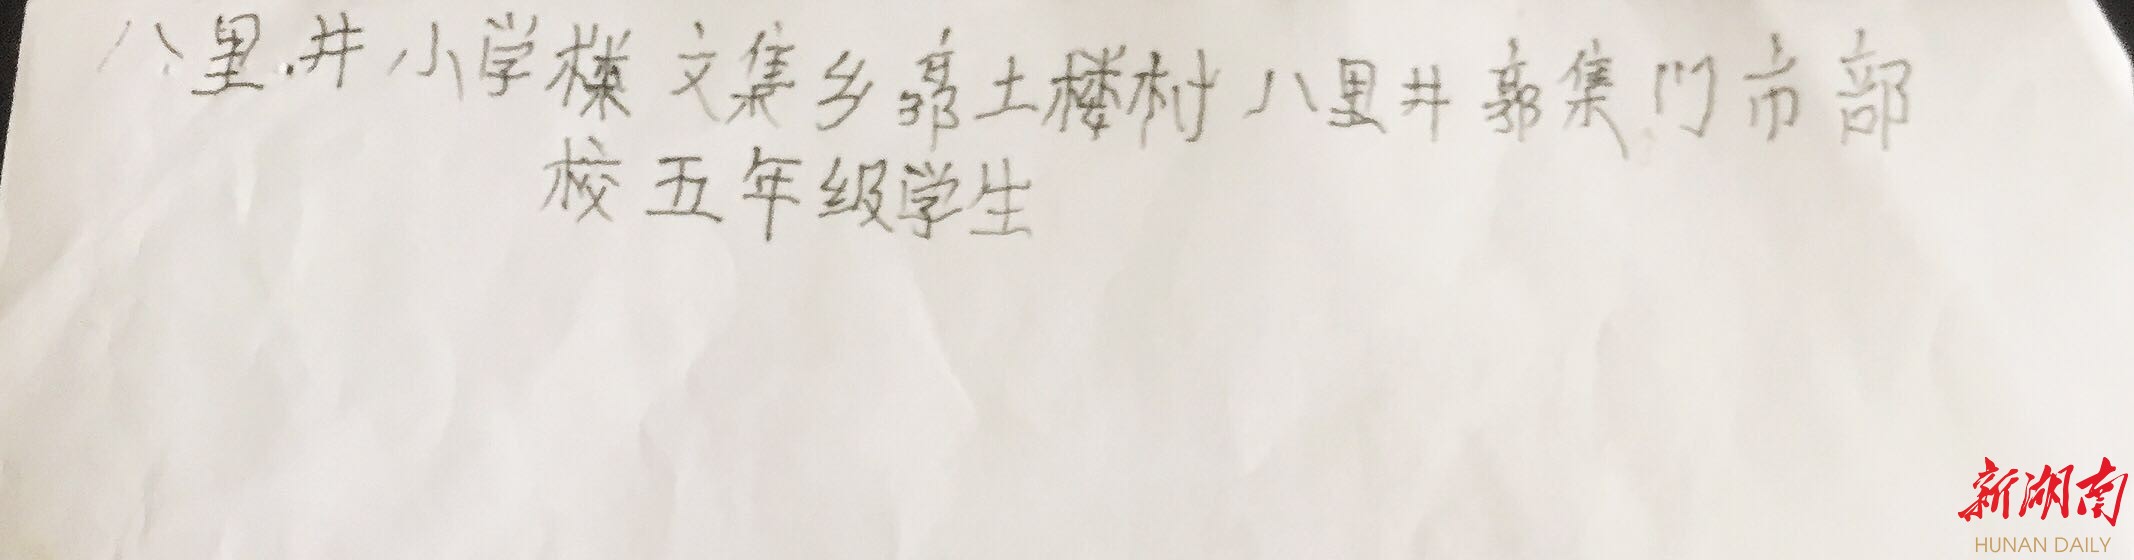 八里井小学 文集乡郭土楼村 八里井郭集门市部
校五年级学生
新湖南
HUNAN DAILY